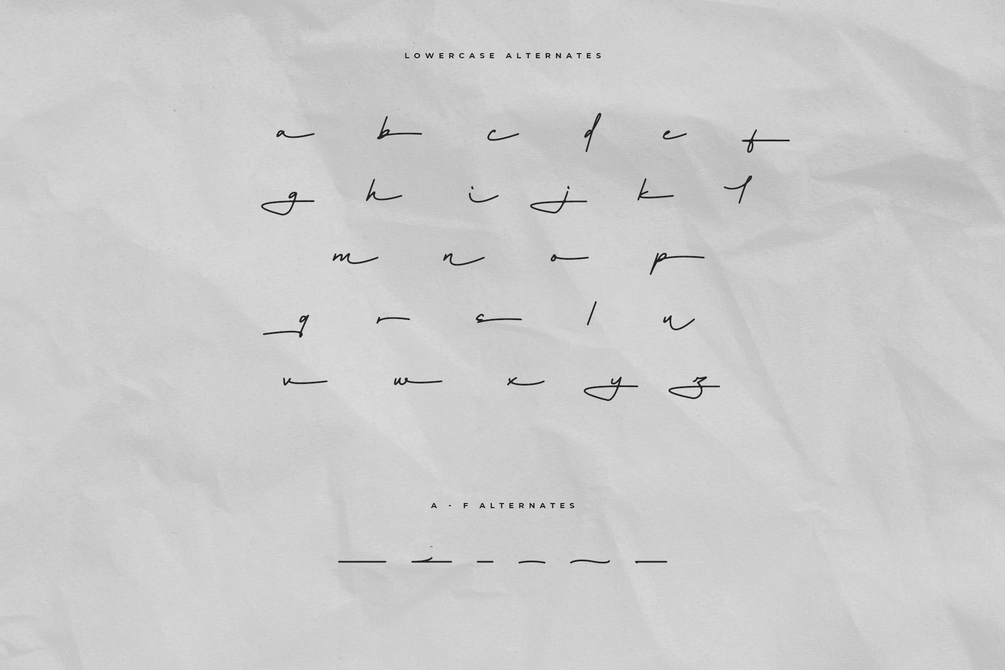 LOWERCASE ALTERNATES
a b c d e f
g h i j k l
m n o p
q r s t u
v w x y z
A - F ALTERNATES